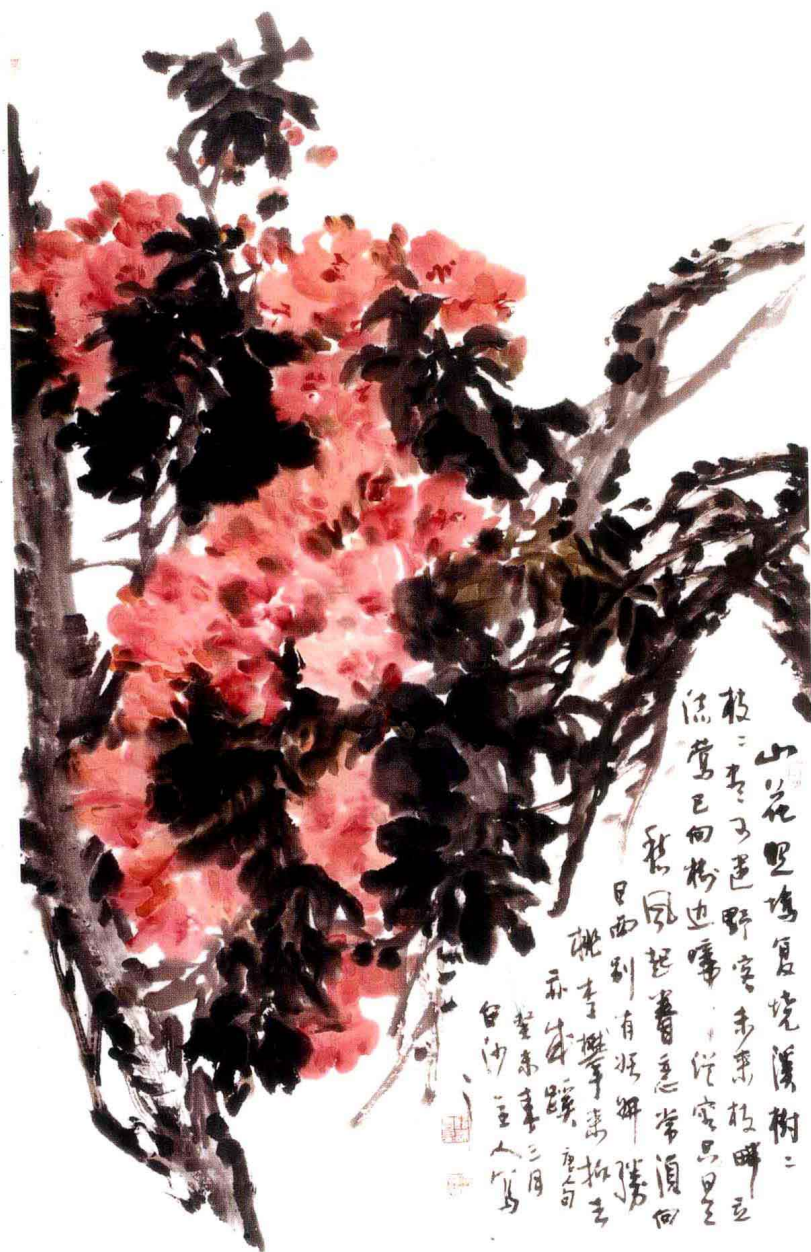 山花照坞复烧溪樹〻
枝〻尽可迷野客未来枝畔立
流莺已向樹边啼从容只是
愁风起眷恋常须向
日西别有妖妍勝
桃李攀来折去
亦成蹊 唐人句
癸未春三月
白沙主人写